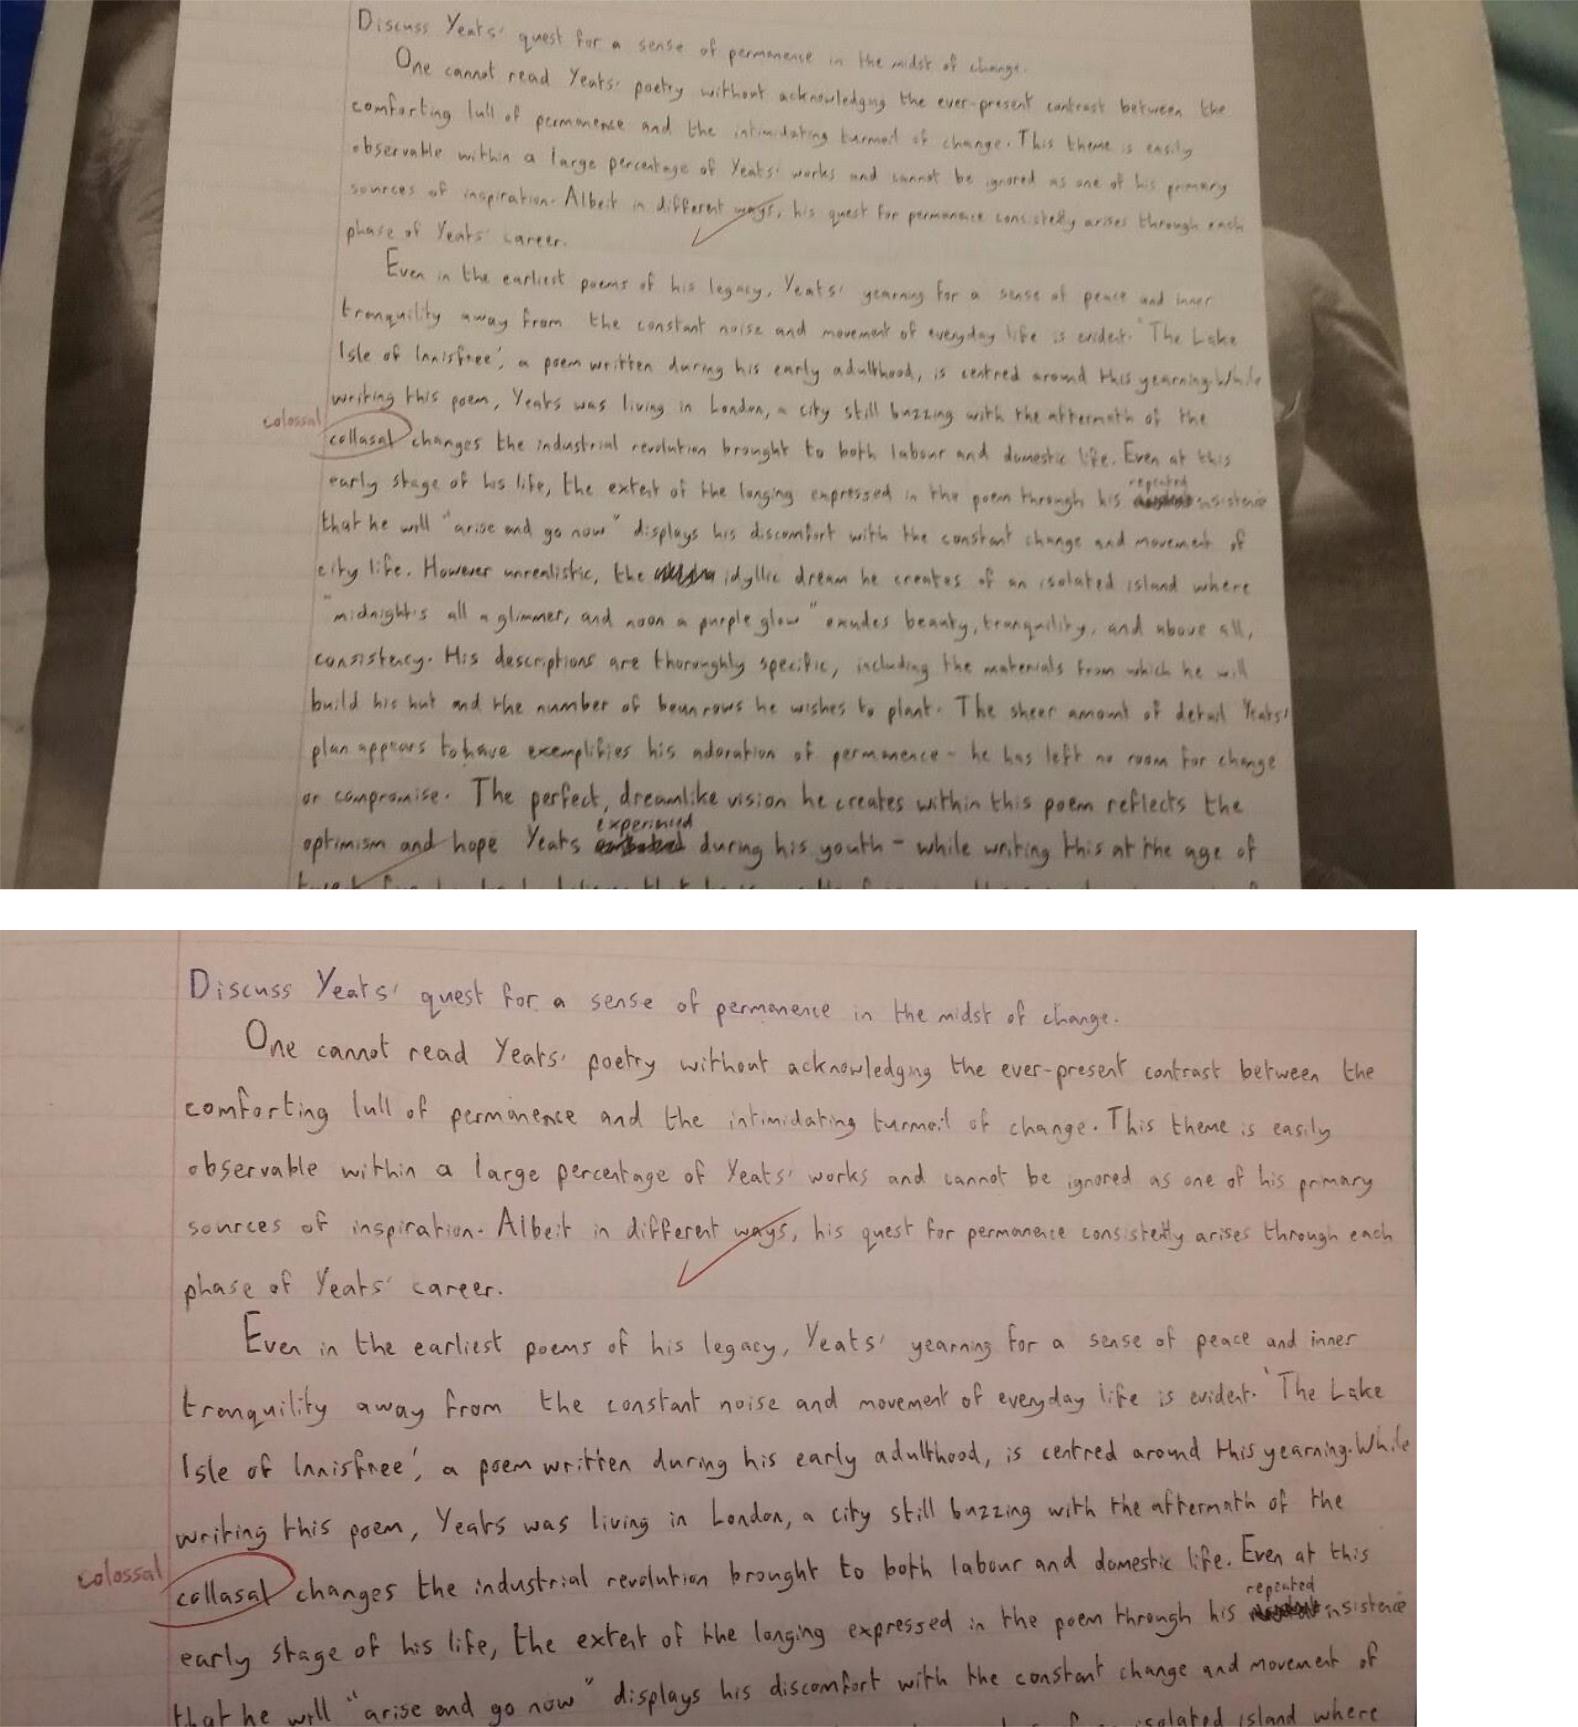 Discuss Yeats' quest for a sense of permanence in the midst of change.
One cannot read Yeats' poetry without acknowledging the ever-present contrast between the
comforting lull of permanence and the intimidating turmoil of change. This theme is easily
observable within a large percentage of Yeats' works and cannot be ignored as one of his primary
sources of inspiration. Albeit in different ways, his quest for permanence consistently arises through each
phase of Yeats' career.
Even in the earliest poems of his legacy, Yeats' yearning for a sense of peace and inner
tranquility away from the constant noise and movement of everyday life is evident. 'The Lake
Isle of Innisfree', a poem written during his early adulthood, is centred around this yearning. While
writing this poem, Yeats was living in London, a city still buzzing with the aftermath of the
colossal
collasal changes the industrial revolution brought to both labour and domestic life. Even at this
repeated
early stage of his life, the extent of the longing expressed in the poem through his insistence
that he will "arise and go now" displays his discomfort with the constant change and movement of
city life. However unrealistic, the idyllic dream he creates of an isolated island where
"midnight's all a glimmer, and noon a purple glow" exudes beauty, tranquility, and above all,
consistency. His descriptions are thoroughly specific, including the materials from which he will
build his hut and the number of beanrows he wishes to plant. The sheer amount of detail Yeats'
plan appears to have exemplifies his adoration of permanence - he has left no room for change
or compromise. The perfect, dreamlike vision he creates within this poem reflects the
experinced
optimism and hope Yeats during his youth - while writing this at the age of
Discuss Yeats' quest for a sense of permanence in the midst of change.
One cannot read Yeats' poetry without acknowledging the ever-present contrast between the
comforting lull of permanence and the intimidating turmoil of change. This theme is easily
observable within a large percentage of Yeats' works and cannot be ignored as one of his primary
sources of inspiration. Albeit in different ways, his quest for permanence consistently arises through each
phase of Yeats' career.
Even in the earliest poems of his legacy, Yeats' yearning for a sense of peace and inner
tranquility away from the constant noise and movement of everyday life is evident. 'The Lake
Isle of Innisfree', a poem written during his early adulthood, is centred around this yearning. While
writing this poem, Yeats was living in London, a city still buzzing with the aftermath of the
colossal
collasal changes the industrial revolution brought to both labour and domestic life. Even at this
repeated
early stage of his life, the extent of the longing expressed in the poem through his insistence
that he will "arise and go now" displays his discomfort with the constant change and movement of
isolated island where